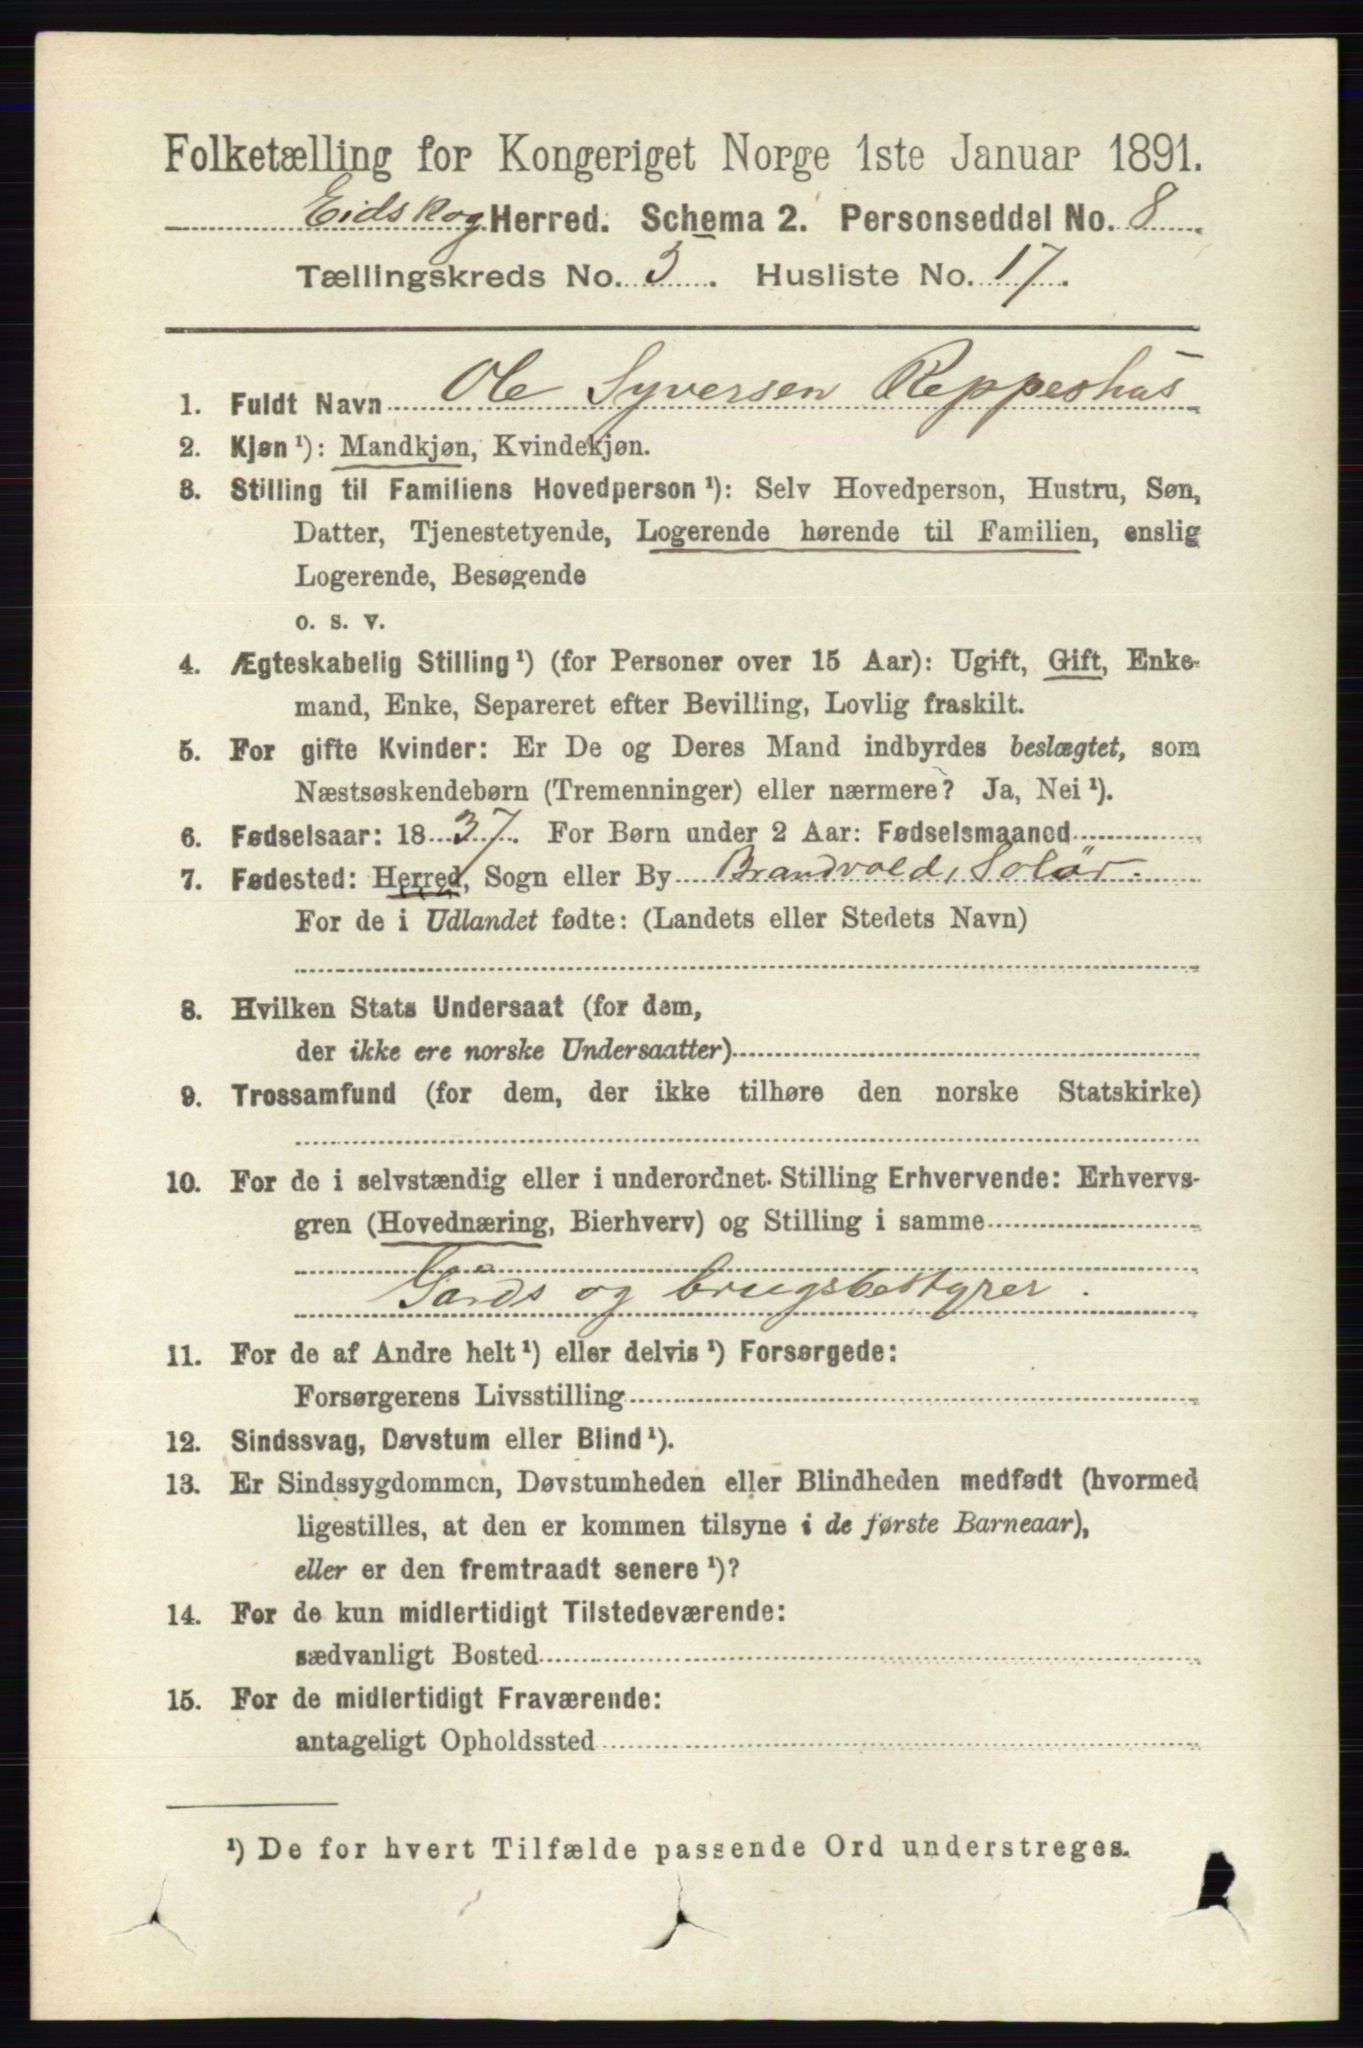 Folketælling for Kongeriget Norge 1ste Januar 1891.
Eidskog Herred. Schema 2. Personseddel No. 8
Tællingskreds No. 3. Husliste No. 17.
1. Fuldt Navn Ole Syversen Reppeshus
2. Kjøn¹): Mandkjøn, Kvindekjøn.
3. Stilling til Familiens Hovedperson¹): Selv Hovedperson, Hustru, Søn,
Datter, Tjenestetyende, Logerende hørende til Familien, enslig
Logerende, Besøgende
o. s. v.
4. Ægteskabelig Stilling¹) (for Personer over 15 Aar): Ugift, Gift, Enke-
mand, Enke, Separeret efter Bevilling, Lovlig fraskilt.
5. For gifte Kvinder: Er De og Deres Mand indbyrdes beslægtet, som
Næstsøskendebørn (Tremenninger) eller nærmere? Ja, Nei¹).
6. Fødselsaar: 1837. For Børn under 2 Aar: Fødselsmaaned
7. Fødested: Herred, Sogn eller By Brandvold, Solör.
For de i Udlandet fødte: (Landets eller Stedets Navn)
8. Hvilken Stats Undersaat (for dem,
der ikke ere norske Undersaatter)
9. Trossamfund (for dem, der ikke tilhøre den norske Statskirke)
10. For de i selvstændig eller i underordnet Stilling Erhvervende: Erhvervs-
gren (Hovednæring, Bierhverv) og Stilling i samme
Gårds og brugsbestyrer.
11. For de af Andre helt¹) eller delvis¹) Forsørgede:
Forsørgerens Livsstilling
12. Sindssvag, Døvstum eller Blind¹).
13. Er Sindssygdommen, Døvstumheden eller Blindheden medfødt (hvormed
ligestilles, at den er kommen tilsyne i de første Barneaar),
eller er den fremtraadt senere¹)?
14. For de kun midlertidigt Tilstedeværende:
sædvanligt Bosted
15. For de midlertidigt Fraværende:
antageligt Opholdssted
¹) De for hvert Tilfælde passende Ord understreges.